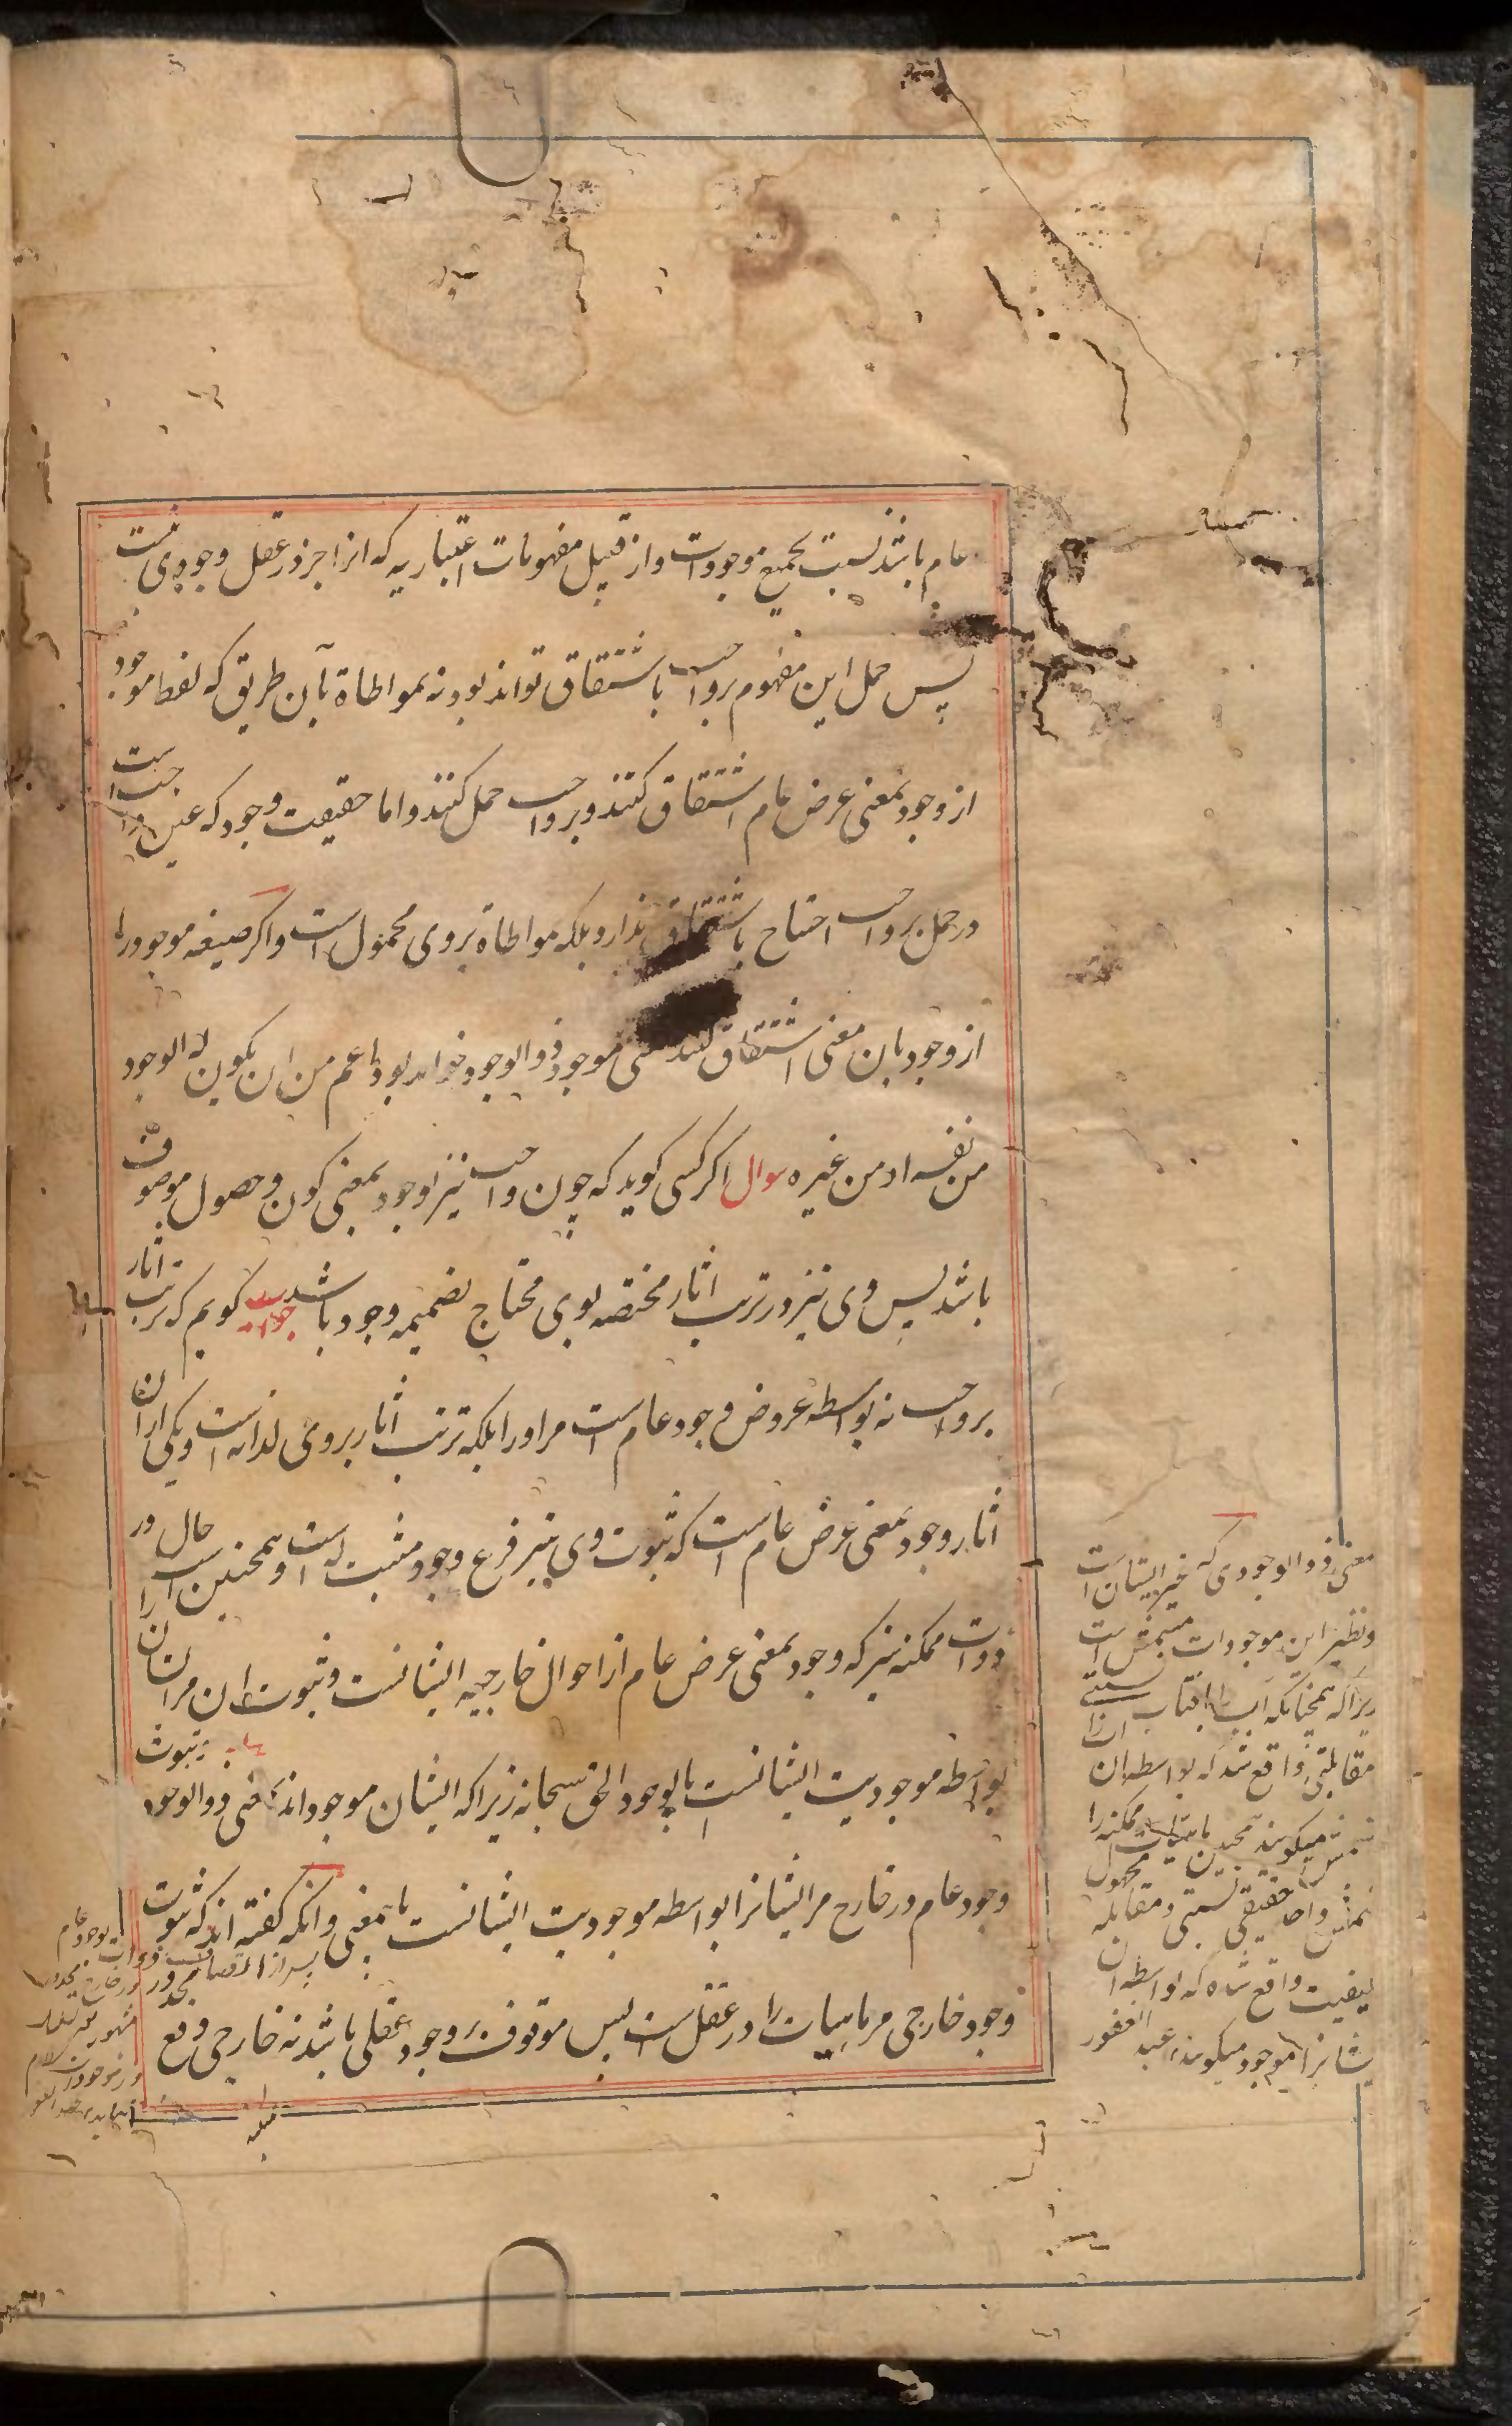 عام باشد نسبت بجمیع موجودات و از قبیل مفهومات اعتباریه که انرا جز در عقل وجودی نیست
پس حمل این مفهوم بر واجب باشتقاق تواند بود نه بمواطاة بآن طریق که لفظ موجود
از وجود بمعنی عرض عام اشتقاق کنند و بر واجب حمل کنند و اما حقیقت وجود که عین واجب است
در حمل بر واجب احتیاج باشتقاق ندارد بلکه مواطاة بر وی محمول است و اگر صیغه موجود را
از وجود بان معنی اشتقاق کنند معنی موجود ذو الوجود خواهد بود اعم من ان یکون له الوجود
من نفسه او من غیره سوال اگر کسی کوید که چون واجب نیز بوجود بمعنی کون و حصول موصوف
باشد پس وی نیز در ترتب اثار مختصه بوی محتاج بضمیمه وجود باشد جواب کویم که ترتب اثار
بر واجب نه بواسطه عروض وجود عام است مر اورا بلکه ترتب اثار بر وی لذاته است و یکی از ان
اثار وجود بمعنی عرض عام است که ثبوت وی نیز فرع وجود مثبت له است و همچنین است حال در
ذوات ممکنه نیز که وجود بمعنی عرض عام از احوال خارجیه ایشانست و ثبوت ان مر ایشان را
بواسطه موجودیت ایشانست بالوجود الحق سبحانه زیرا که ایشان موجود اند بمعنی ذو الوجود و ثبوت
وجود عام در خارج مر ایشانرا بواسطه موجودیت ایشانست باین معنی و انکه کفته اند که ثبوت
وجود خارجی مر ماهیات را در عقل است پس موقوف بر وجود عقلی باشد نه خارجی دفع
معنی ذو الوجودی که غیر ایشان است
و نظیر این موجودات مشمس است
زیرا که همچنانکه آب را با افتاب نسبتی
مقابلتی واقع شد که بواسطه ان انرا
مشمس میکویند همچنین ماهیات ممکنه را
واحد حقیقی نسبتی و مقابله
کیفیت واقع شده که بواسطه ان
ایشانرا موجود میکویند عبد الغفور